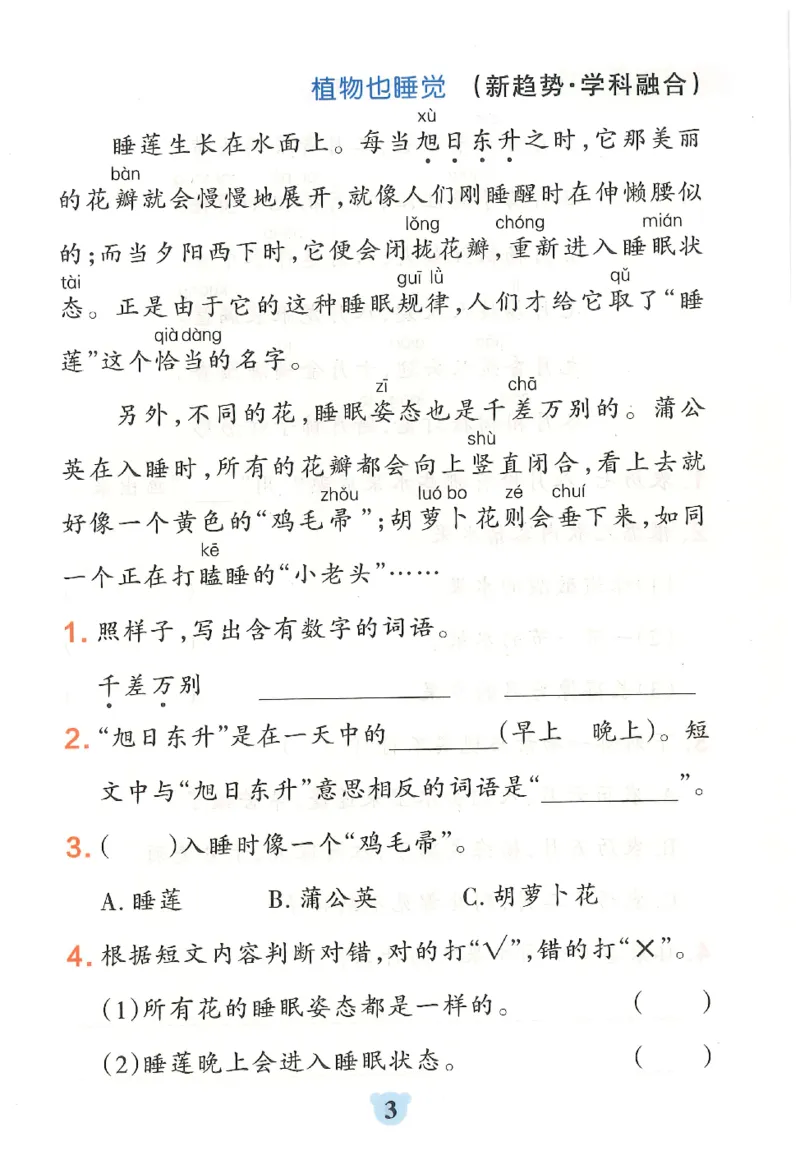 植物也睡觉 （新趋势·学科融合）
xù
睡莲生长在水面上。每当旭日东升之时，它那美丽
bàn
的花瓣就会慢慢地展开，就像人们刚睡醒时在伸懒腰似
lǒng chóng mián
的；而当夕阳西下时，它便会闭拢花瓣，重新进入睡眠状
tài guī lǜ qǔ
态。正是由于它的这种睡眠规律，人们才给它取了“睡
qià dàng
莲”这个恰当的名字。
zī chā
另外，不同的花，睡眠姿态也是千差万别的。蒲公
shù
英在入睡时，所有的花瓣都会向上竖直闭合，看上去就
zhǒu luó bo zé chuí
好像一个黄色的“鸡毛帚”；胡萝卜花则会垂下来，如同
kē
一个正在打瞌睡的“小老头”……
1. 照样子，写出含有数字的词语。
千差万别 ________ ________
2. “旭日东升”是在一天中的______（早上 晚上）。短
文中与“旭日东升”意思相反的词语是“________”。
3. （ ）入睡时像一个“鸡毛帚”。
A. 睡莲 B. 蒲公英 C. 胡萝卜花
4. 根据短文内容判断对错，对的打“√”，错的打“×”。
（1）所有花的睡眠姿态都是一样的。 （ ）
（2）睡莲晚上会进入睡眠状态。 （ ）
3